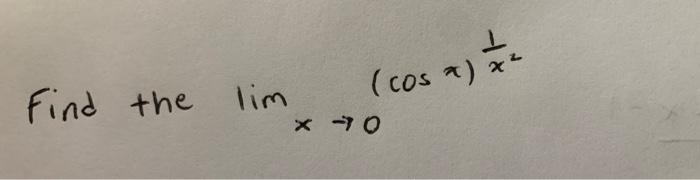 Find the lim x → 0 (cos x)^(1/x²)